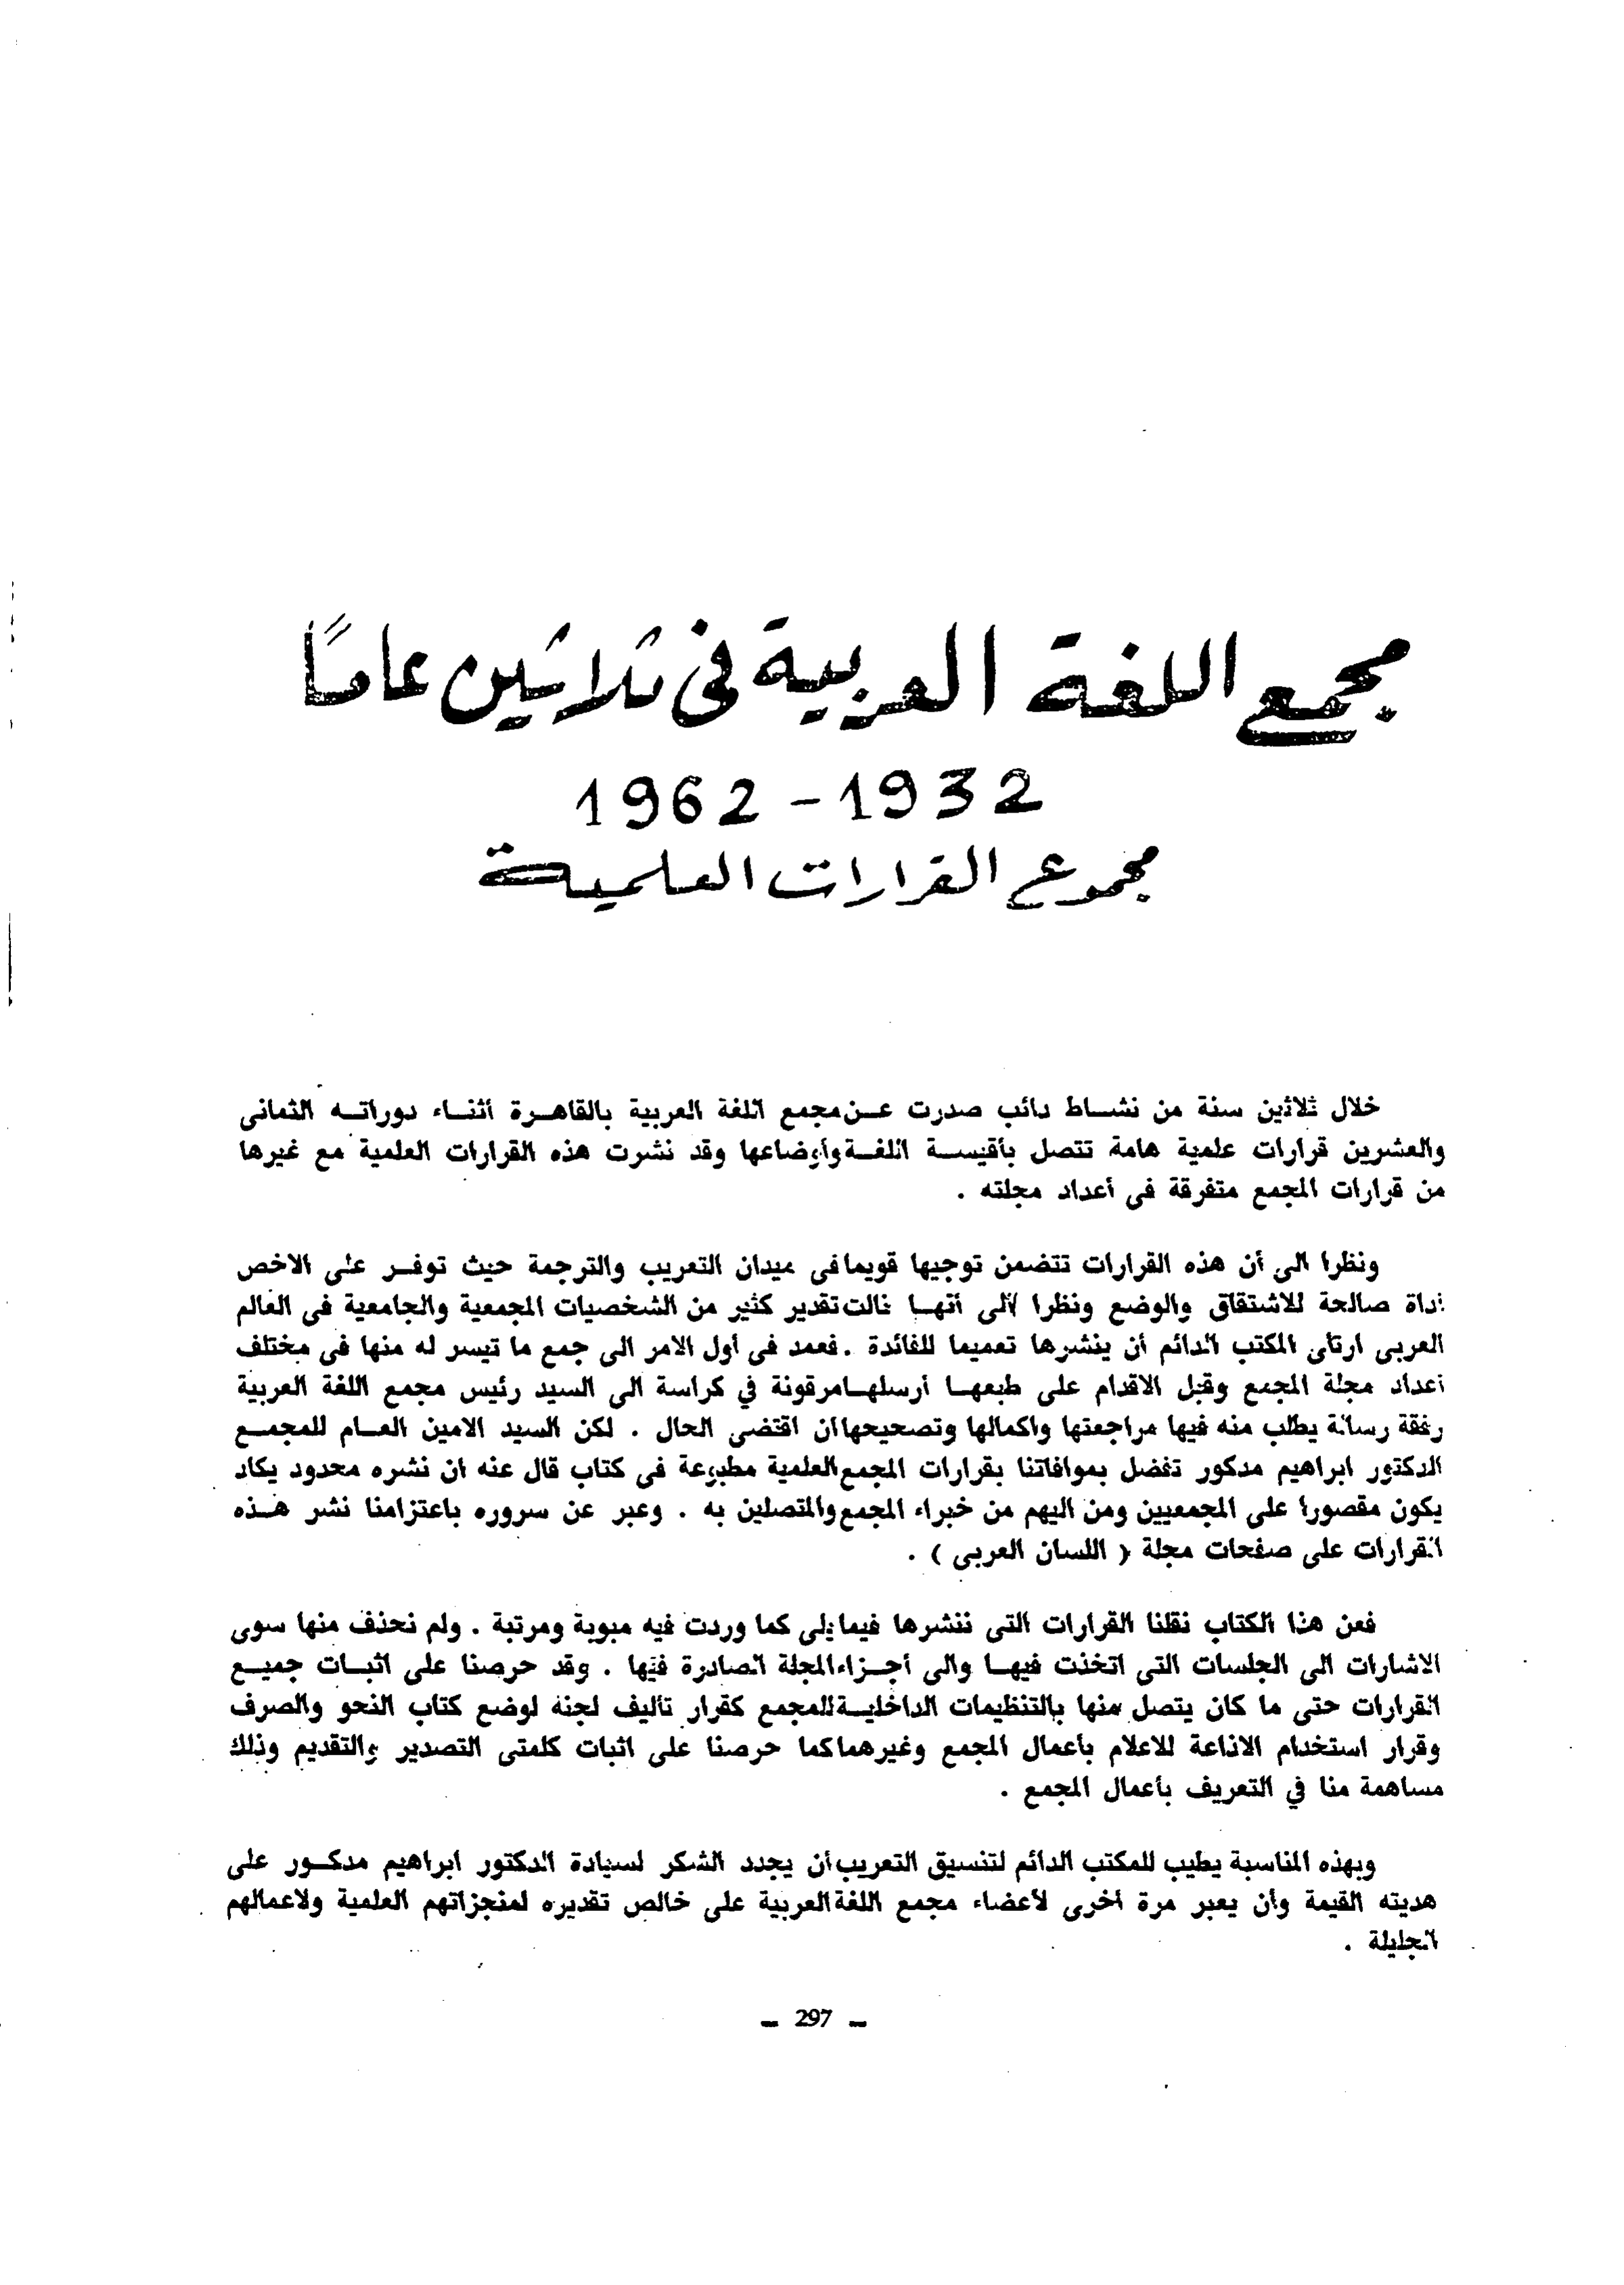 مجمع اللغة العربية فى ثلاثين عامًا
1932 - 1962
مجموع القرارات العلمية
خلال ثلاثين سنة من نشاط دائب صدرت عن مجمع اللغة العربية بالقاهرة أثناء دوراته الثمانى
والعشرين قرارات علمية هامة تتصل بأقيسة اللغة وأوضاعها وقد نشرت هذه القرارات العلمية مع غيرها
من قرارات المجمع متفرقة فى أعداد مجلته .
ونظرا الى أن هذه القرارات تتضمن توجيها قويما فى ميدان التعريب والترجمة حيث توفر على الاخص
أداة صالحة للاشتقاق والوضع ونظرا الى أنها نالت تقدير كثير من الشخصيات المجمعية والجامعية فى العالم
العربى ارتأى المكتب الدائم أن ينشرها تعميما للفائدة . فعمد فى أول الامر الى جمع ما تيسر له منها فى مختلف
أعداد مجلة المجمع وقبل الاقدام على طبعها أرسلها مرقونة في كراسة الى السيد رئيس مجمع اللغة العربية
رفقة رسالة يطلب منه فيها مراجعتها واكمالها وتصحيحها ان اقتضى الحال . لكن السيد الامين العام للمجمع
الدكتور ابراهيم مدكور تفضل بموافاتنا بقرارات المجمع العلمية مطبوعة فى كتاب قال عنه ان نشره محدود يكاد
يكون مقصورا على المجمعيين ومن اليهم من خبراء المجمع والمتصلين به . وعبر عن سروره باعتزامنا نشر هذه
القرارات على صفحات مجلة ( اللسان العربى ) .
فعن هذا الكتاب نقلنا القرارات التى ننشرها فيما يلى كما وردت فيه مبوبة ومرتبة . ولم نحذف منها سوى
الاشارات الى الجلسات التى اتخذت فيها والى أجزاء المجلة الصادرة فيها . وقد حرصنا على اثبات جميع
القرارات حتى ما كان يتصل منها بالتنظيمات الداخلية للمجمع كقرار تأليف لجنة لوضع كتاب النحو والصرف
وقرار استخدام الاذاعة للاعلام بأعمال المجمع وغيرهما كما حرصنا على اثبات كلمتى التصدير والتقديم وذلك
مساهمة منا في التعريف بأعمال المجمع .
وبهذه المناسبة يطيب للمكتب الدائم لتنسيق التعريب أن يجدد الشكر لسيادة الدكتور ابراهيم مدكور على
هديته القيمة وأن يعبر مرة أخرى لأعضاء مجمع اللغة العربية على خالص تقديره لمنجزاتهم العلمية ولاعمالهم
الجليلة .
- 297 -